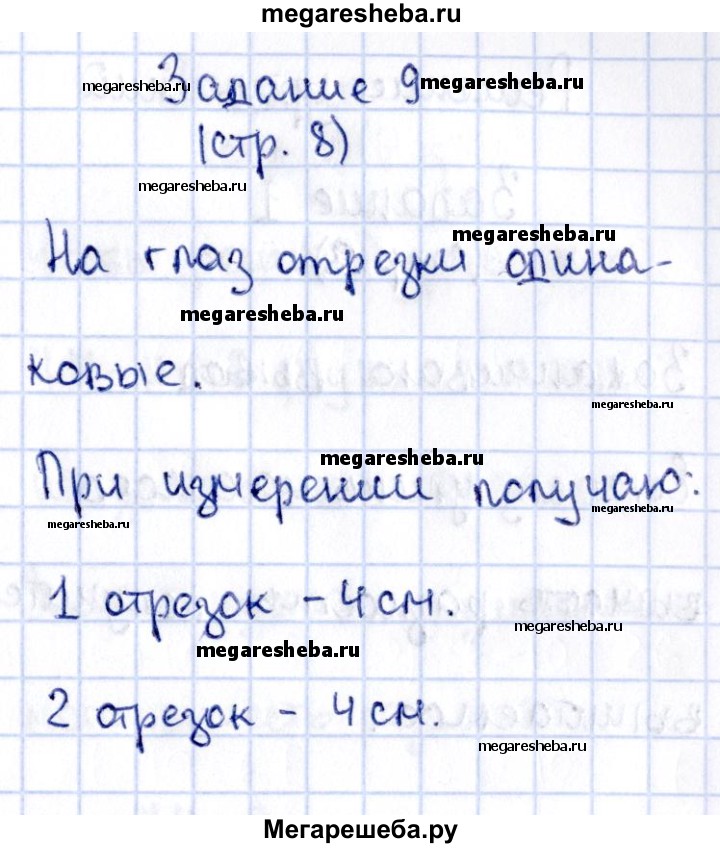 megaresheba.ru
megaresheba.ru
Задание 9
megaresheba.ru
(стр. 8)
megaresheba.ru
megaresheba.ru
На глаз отрезки одина-
megaresheba.ru
ковые.
megaresheba.ru
megaresheba.ru
При измерении получаю:
megaresheba.ru
megaresheba.ru
1 отрезок - 4 см.
megaresheba.ru
megaresheba.ru
2 отрезок - 4 см.
megaresheba.ru
Мегарешеба.ру